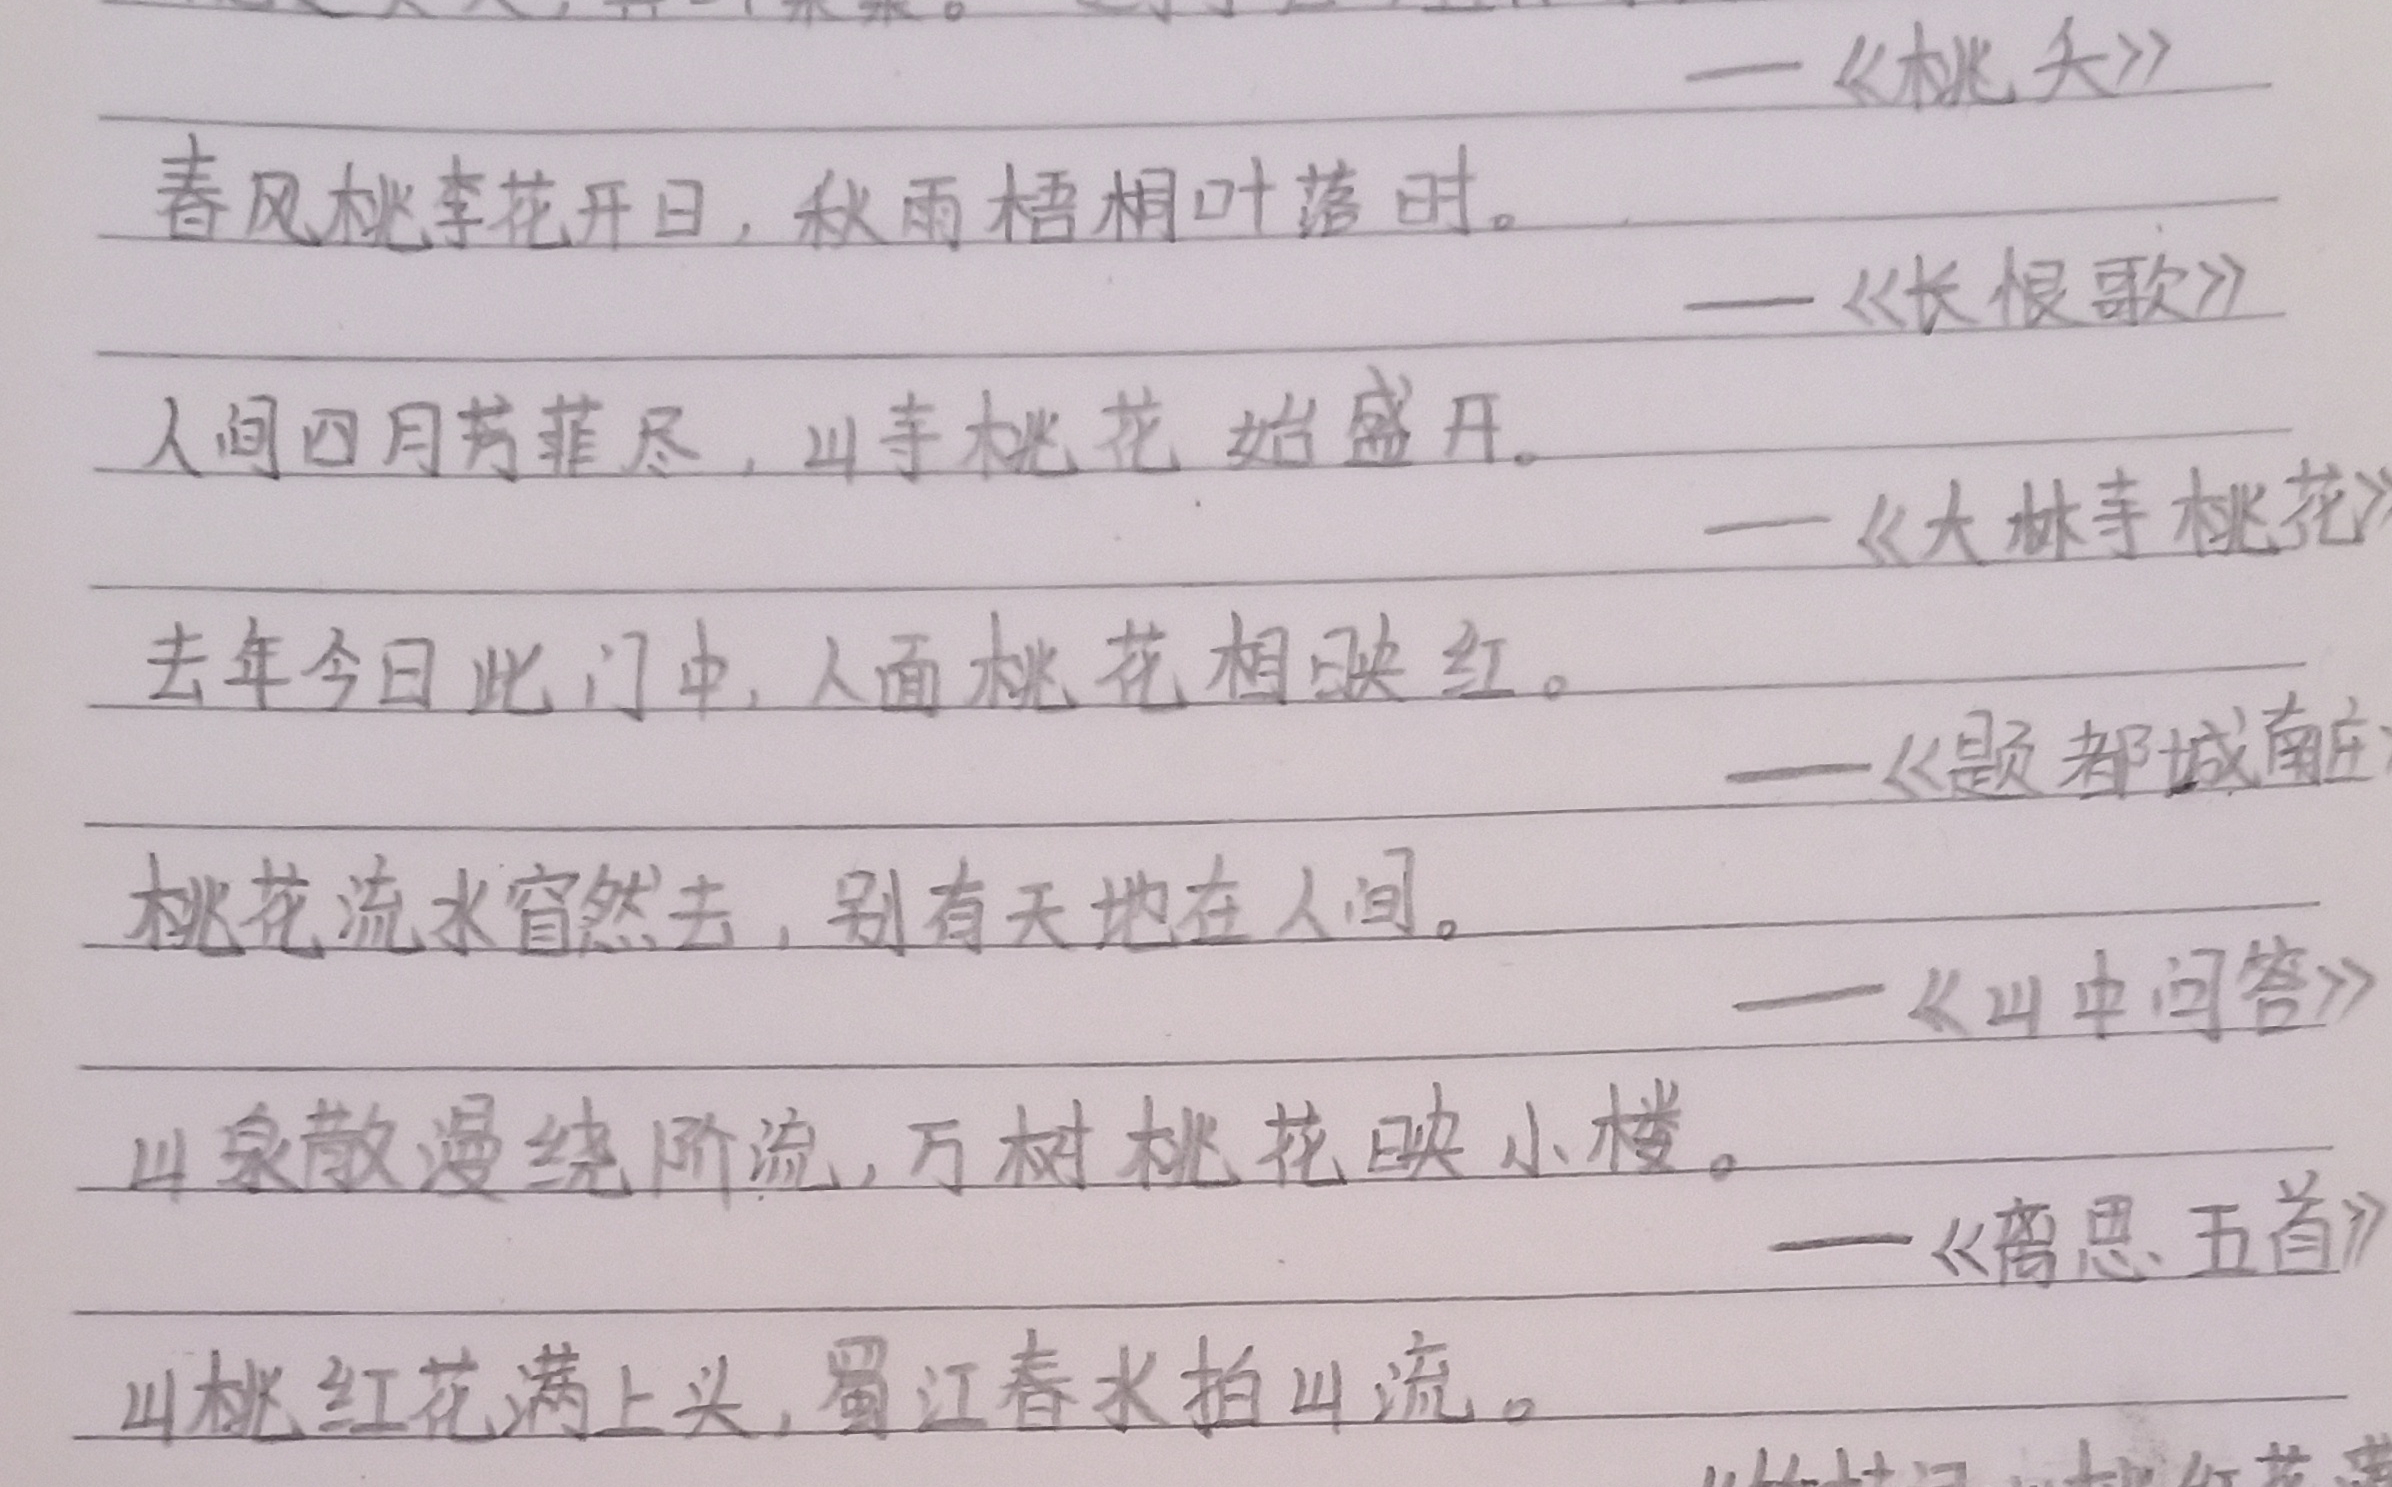 —《桃夭》
春风桃李花开日，秋雨梧桐叶落时。
—《长恨歌》
人间四月芳菲尽，山寺桃花始盛开。
—《大林寺桃花》
去年今日此门中，人面桃花相映红。
—《题都城南庄
桃花流水窅然去，别有天地在人间。
—《山中问答》
山泉散漫绕阶流，万树桃花映小楼。
—《离思五首》
山桃红花满上头，蜀江春水拍山流。